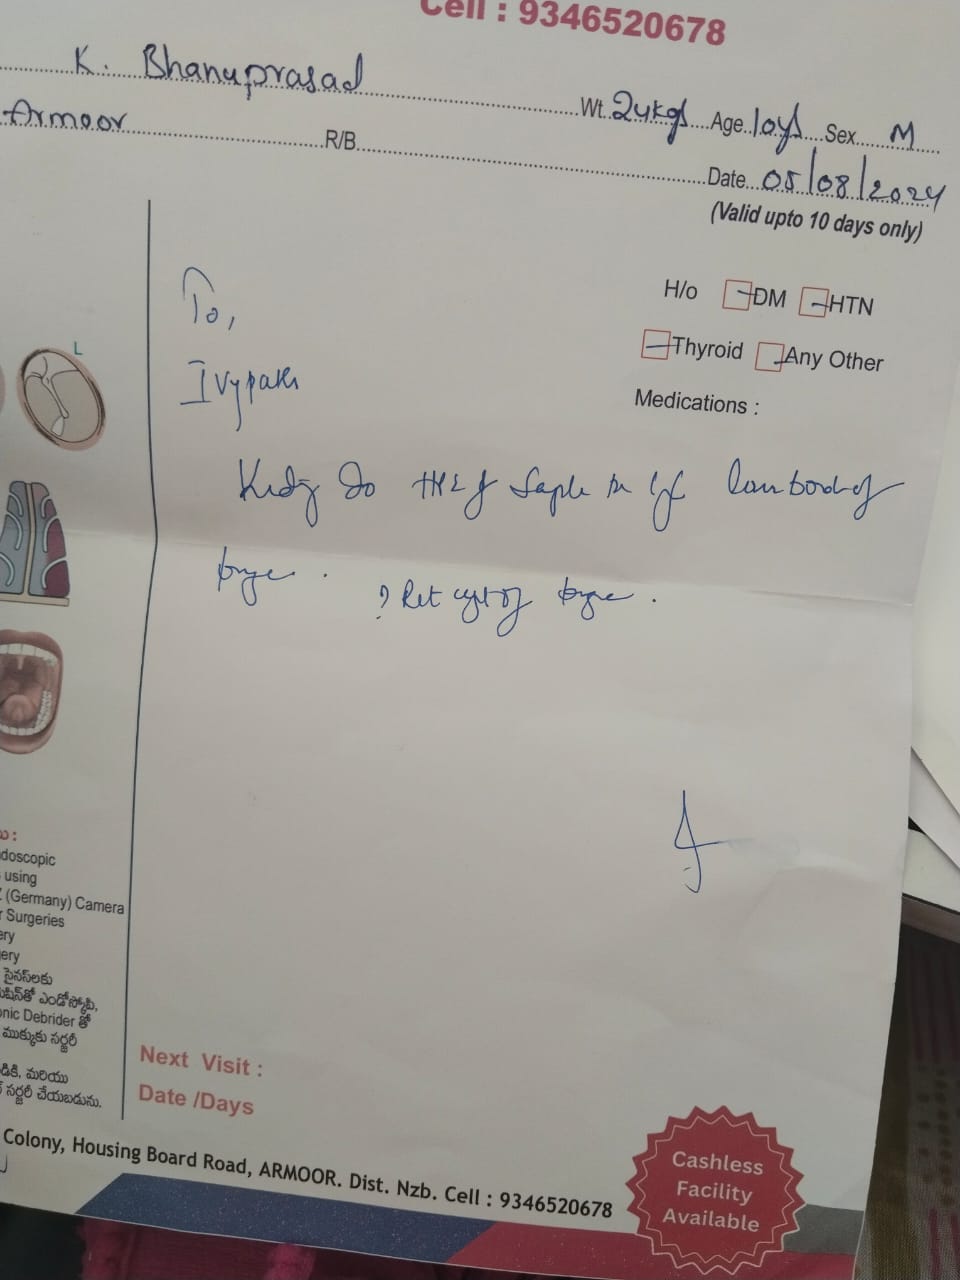 Cell : 9346520678
K. Bhanuprasad Wt. 24kgs Age 10ys Sex M
Armoor R/B
Date 05/08/2024
(Valid upto 10 days only)
H/o DM HTN
Thyroid Any Other
Medications :
L
To,
Ivypath
Kindly Do HPE of Sample
of
? Ret cyst of
doscopic
using
(Germany) Camera
Surgeries
ery
ery
సైనస్‌లకు
ఎండోస్కోపి,
onic Debrider తో
ముక్కుకు సర్జరీ
డికి, మరియు
సర్జరీ చేయబడును.
Next Visit :
Date /Days
Colony, Housing Board Road, ARMOOR. Dist. Nzb. Cell : 9346520678
Cashless
Facility
Available